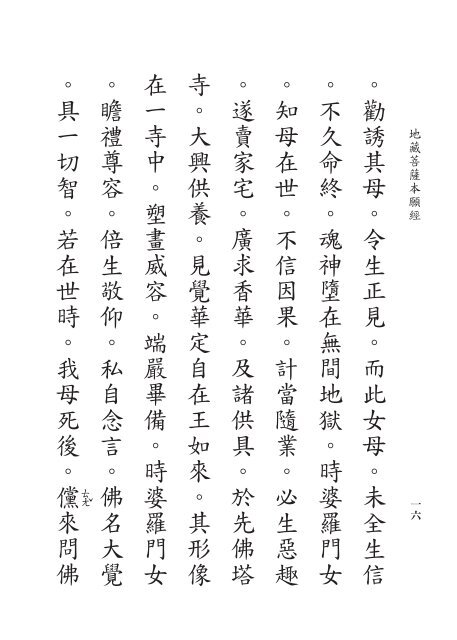 地藏菩薩本願經
一六
。勸誘其母。令生正見。而此女母。未全生信
。不久命終。魂神墮在無間地獄。時婆羅門女
。知母在世。不信因果。計當隨業。必生惡趣
。遂賣家宅。廣求香華。及諸供具。於先佛塔
寺。大興供養。見覺華定自在王如來。其形像
在一寺中。塑畫威容。端嚴畢備。時婆羅門女
。瞻禮尊容。倍生敬仰。私自念言。佛名大覺
ㄊㄤˇ
。具一切智。若在世時。我母死後。儻來問佛